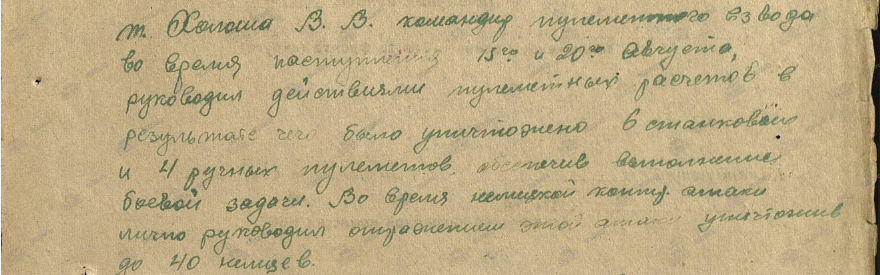 т. Холоша В. В. командир пулеметного взвода
во время наступления 15го и 20го Августа,
руководил действиями пулеметных расчетов в
результате чего было уничтожено 6 станковых
и 4 ручных пулеметов, обеспечив выполнение
боевой задачи. Во время немецкой контр. атаки
лично руководил отражением этой атаки уничтожив
до 40 немцев.